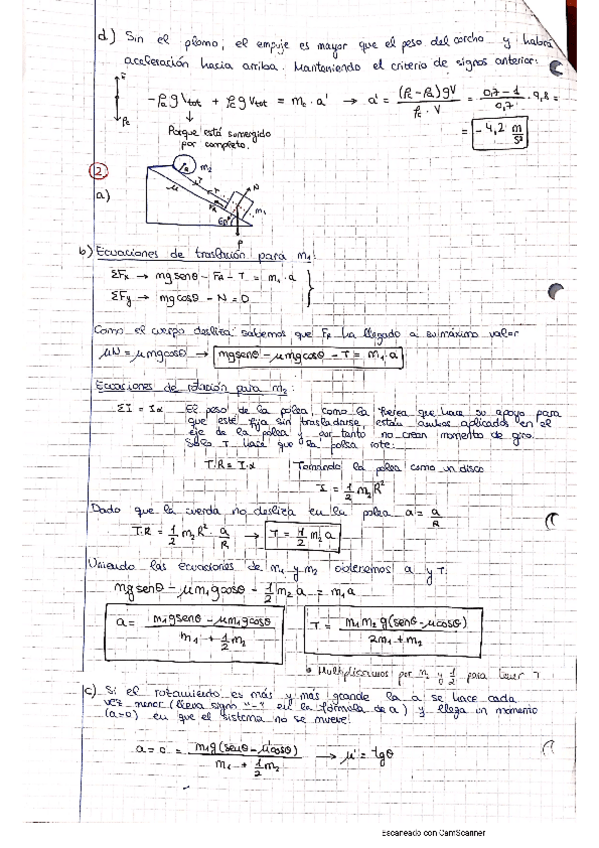 d) Sin el plomo, el empuje es mayor que el peso del corcho y habrá
aceleración hacia arriba. Manteniendo el criterio de signos anterior:
-ρa g Vtot + ρc g Vtot = mc · a' → a' = (ρc - ρa) g V / ρc · V = 0,7 - 1 / 0,7 · 9,8 =
= -4,2 m/s²
Porque está sumergido
por completo.
2
a)
m2
μ
T
T
N
FR
m1
60°
P
b) Ecuaciones de traslación para m1:
ΣFx → mg senθ - FR - T = m1 · a
ΣFy → mg cosθ - N = 0
Como el cuerpo desliza, sabemos que FR ha llegado a su máximo valor
μN = μmg cosθ → mg senθ - μmg cosθ - T = m1 · a
Ecuaciones de rotación para m2:
ΣI = Iα El peso de la polea, como la fuerza que hace su apoyo para
que esté fija sin trasladarse, están ambos aplicados en el
eje de la polea y por tanto no crean momento de giro.
Solo T hace que la polea rote:
T·R = I·α Tomando la polea como un disco
I = 1/2 m2 R²
Dado que la cuerda no desliza en la polea α = a/R
T·R = 1/2 m2 R² · a/R → T = 1/2 m2 a
Uniendo las ecuaciones de m1 y m2 obtenemos a y T:
mg senθ - μ m1 g cosθ - 1/2 m2 a = m1 a
a = m1 g senθ - μ m1 g cosθ / m1 + 1/2 m2
T = m1 m2 g (senθ - μ cosθ) / 2m1 + m2
Multiplicamos por m2 y 1/2 para tener T
c) Si el rozamiento es más y más grande la a se hace cada
vez menor (lleva signo "-" en la fórmula de a) y llega un momento
(a=0) en que el sistema no se mueve:
a = 0 = m1 g (senθ - μ' cosθ) / m1 + 1/2 m2 → μ' = tgθ
Escaneado con CamScanner